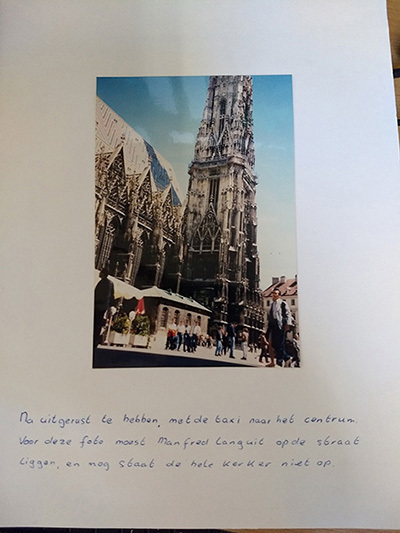 Na uitgerust te hebben, met de taxi naar het centrum.
Voor deze foto moest Manfred languit op de straat
liggen, en nog staat de hele kerker niet op.